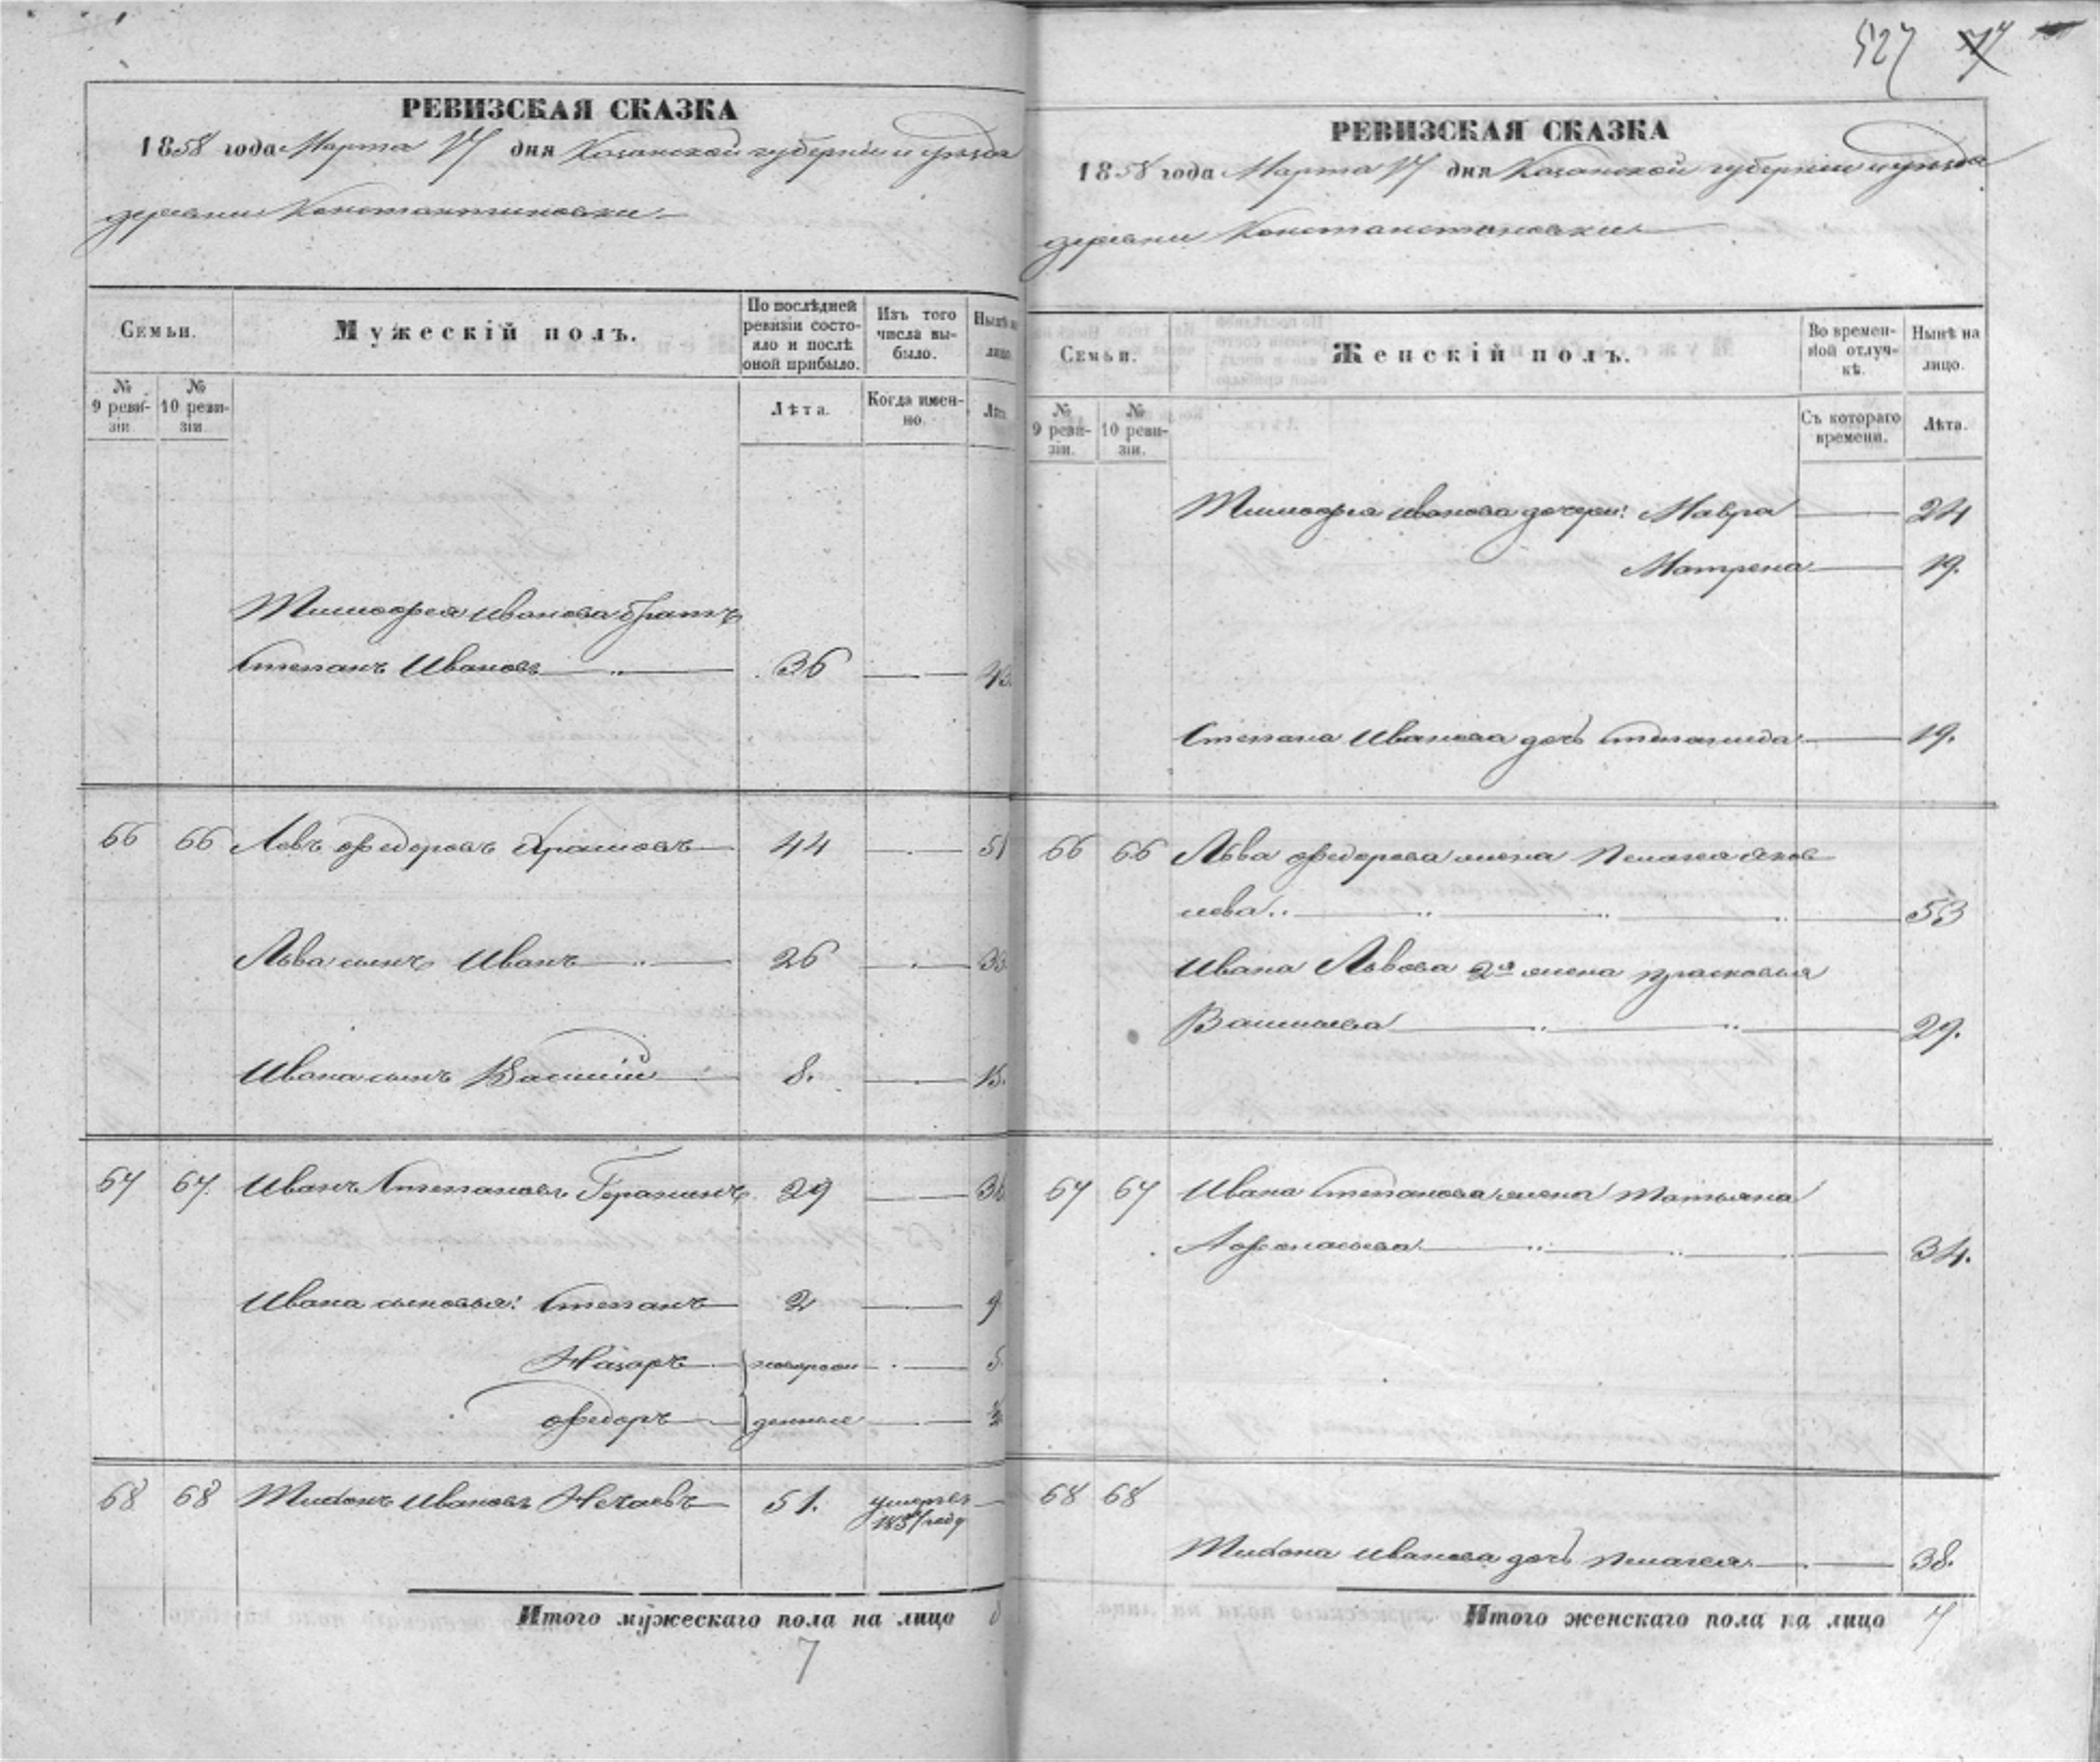 РЕВИЗСКАЯ СКАЗКА
1858 года Марта 17 дня Казанской губерніи и уѣзда
деревни Константиновки
Семьи.
Мужескій полъ.
По послѣдней ревизіи состояло и послѣ оной прибыло.
Изъ того числа выбыло.
Нынѣ на лицо.
№ 9 ревизіи.
№ 10 ревизіи.
Лѣта.
Когда именно.
Лѣта.
Тимофея Иванова братъ
Степанъ Ивановъ 36 43.
66 66 Левъ Федоровъ 44 51
Льва сынъ Иванъ 26 33
Ивана сынъ Василій 8. 15.
67 67. Иванъ Степановъ 29 36
Ивана сыновья: Степанъ 2 9
Назаръ новорож 5.
Федоръ денные
68 68 Тихонъ Ивановъ Нечаевъ 51. умеръ въ
1857 году
Итого мужескаго пола на лицо 8
7
527
РЕВИЗСКАЯ СКАЗКА
1858 года Марта 17 дня Казанской губерніи и уѣзда
деревни Константиновки
Семьи.
Женскій полъ.
Во временной отлучкѣ.
Нынѣ на лицо.
№ 9 ревизіи.
№ 10 ревизіи.
Съ котораго времени.
Лѣта.
Тимофея Иванова дочери: Мавра 24
Матрена 19.
Степана Иванова дочь Степанида 19.
66 66 Льва Федорова жена Пелагея Яков
лева 53
Ивана Львова 2я жена Прасковья
Васильева 29.
67 67 Ивана Степанова жена Татьяна
Афанасьева 34.
68 68
Тихона Иванова дочь Пелагея 38.
Итого женскаго пола на лицо 7